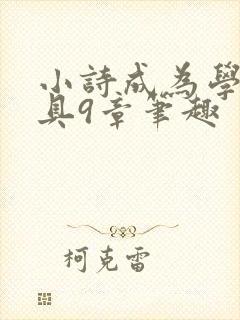 小詩成為學
具9章筆趣
柯克雷